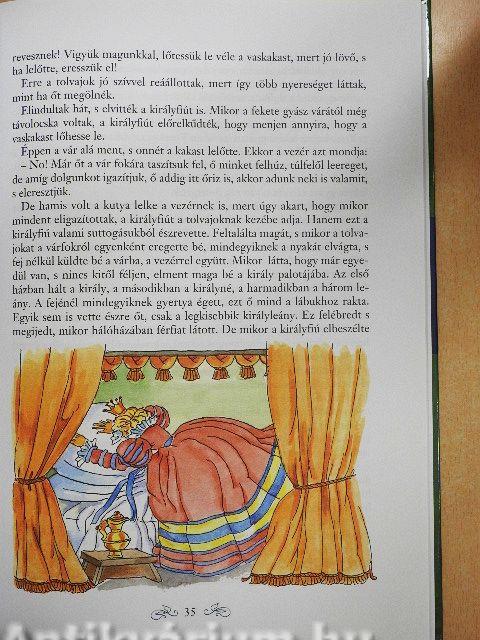 revesznek! Vigyük magunkkal, lőtessük le véle a vaskakast, mert jó lövő, s
ha lelőtte, eresszük el!
Erre a tolvajok jó szívvel reáállottak, mert így több nyereséget láttak,
mint ha őt megölnék.
Elindultak hát, s elvitték a királyfiút is. Mikor a fekete gyász várától még
távolocska voltak, a királyfiút előreküldték, hogy menjen annyira, hogy a
vaskakast lőhesse le.
Éppen a vár alá ment, s onnét a kakast lelőtte. Ekkor a vezér azt mondja:
– No! Már őt a vár fokára taszítsuk fel, ő minket felhúz, túlfelől leereget,
de amíg dolgunkot igazítjuk, ő addig itt őriz is, akkor adunk neki is valamit,
s eleresztjük.
De hamis volt a kutya lelke a vezérnek is, mert úgy akart, hogy mikor
mindent eligazítottak, a királyfiút a tolvajoknak kezébe adja. Hanem ezt a
királyfiú valami suttogásukból észrevette. Feltalálta magát, s mikor a tolva-
jokat a várfokról egyenként eregette bé, mindegyiknek a nyakát elvágta, s
fej nélkül küldte bé a várba, a vezérrel együtt. Mikor látta, hogy már egye-
dül van, s nincs kitől féljen, elment maga bé a király palotájába. Az első
házban hált a király, a másodikban a királyné, a harmadikban a három le-
ány. A fejénél mindegyiknek gyertya égett, ezt ő mind a lábukhoz rakta.
Egyik sem is vette észre őt, csak a legkisebbik királyleány. Ez felébredt s
megijedt, mikor hálóházában férfiat látott. De mikor a királyfiú elbeszélte
35
Antikvárium.hu